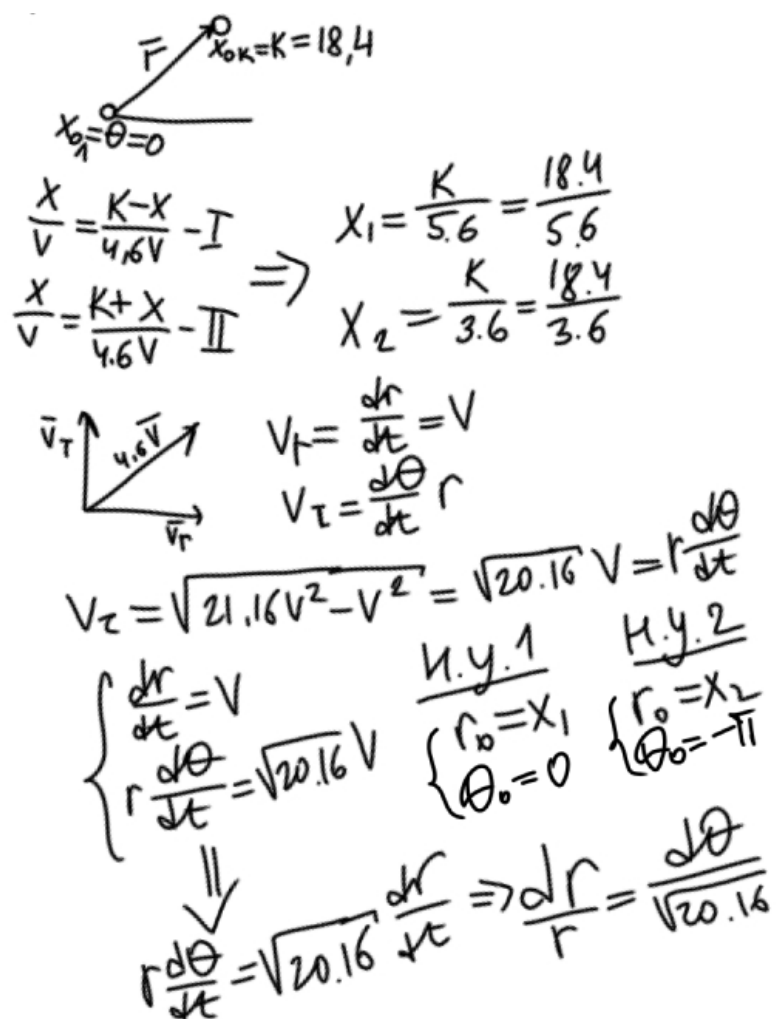 r̄ x₀ₖ=K=18,4
x₀₁=θ=0
X/V = (K-X)/4,6V - I
X/V = (K+X)/4.6V - II
=> X₁ = K/5.6 = 18.4/5.6
X₂ = K/3.6 = 18.4/3.6
V̄τ 4.6V̄ V̄r
Vr = dr/dt = V
Vτ = dθ/dt r
Vτ = √(21,16V² - V²) = √20.16 V = r dθ/dt
{ dr/dt = V
r dθ/dt = √20.16 V
Н.у.1
{ r₀ = X₁
θ₀ = 0
Н.у.2
{ r₀ = X₂
θ₀ = -π
r dθ/dt = √20.16 dr/dt => dr/r = dθ/√20.16